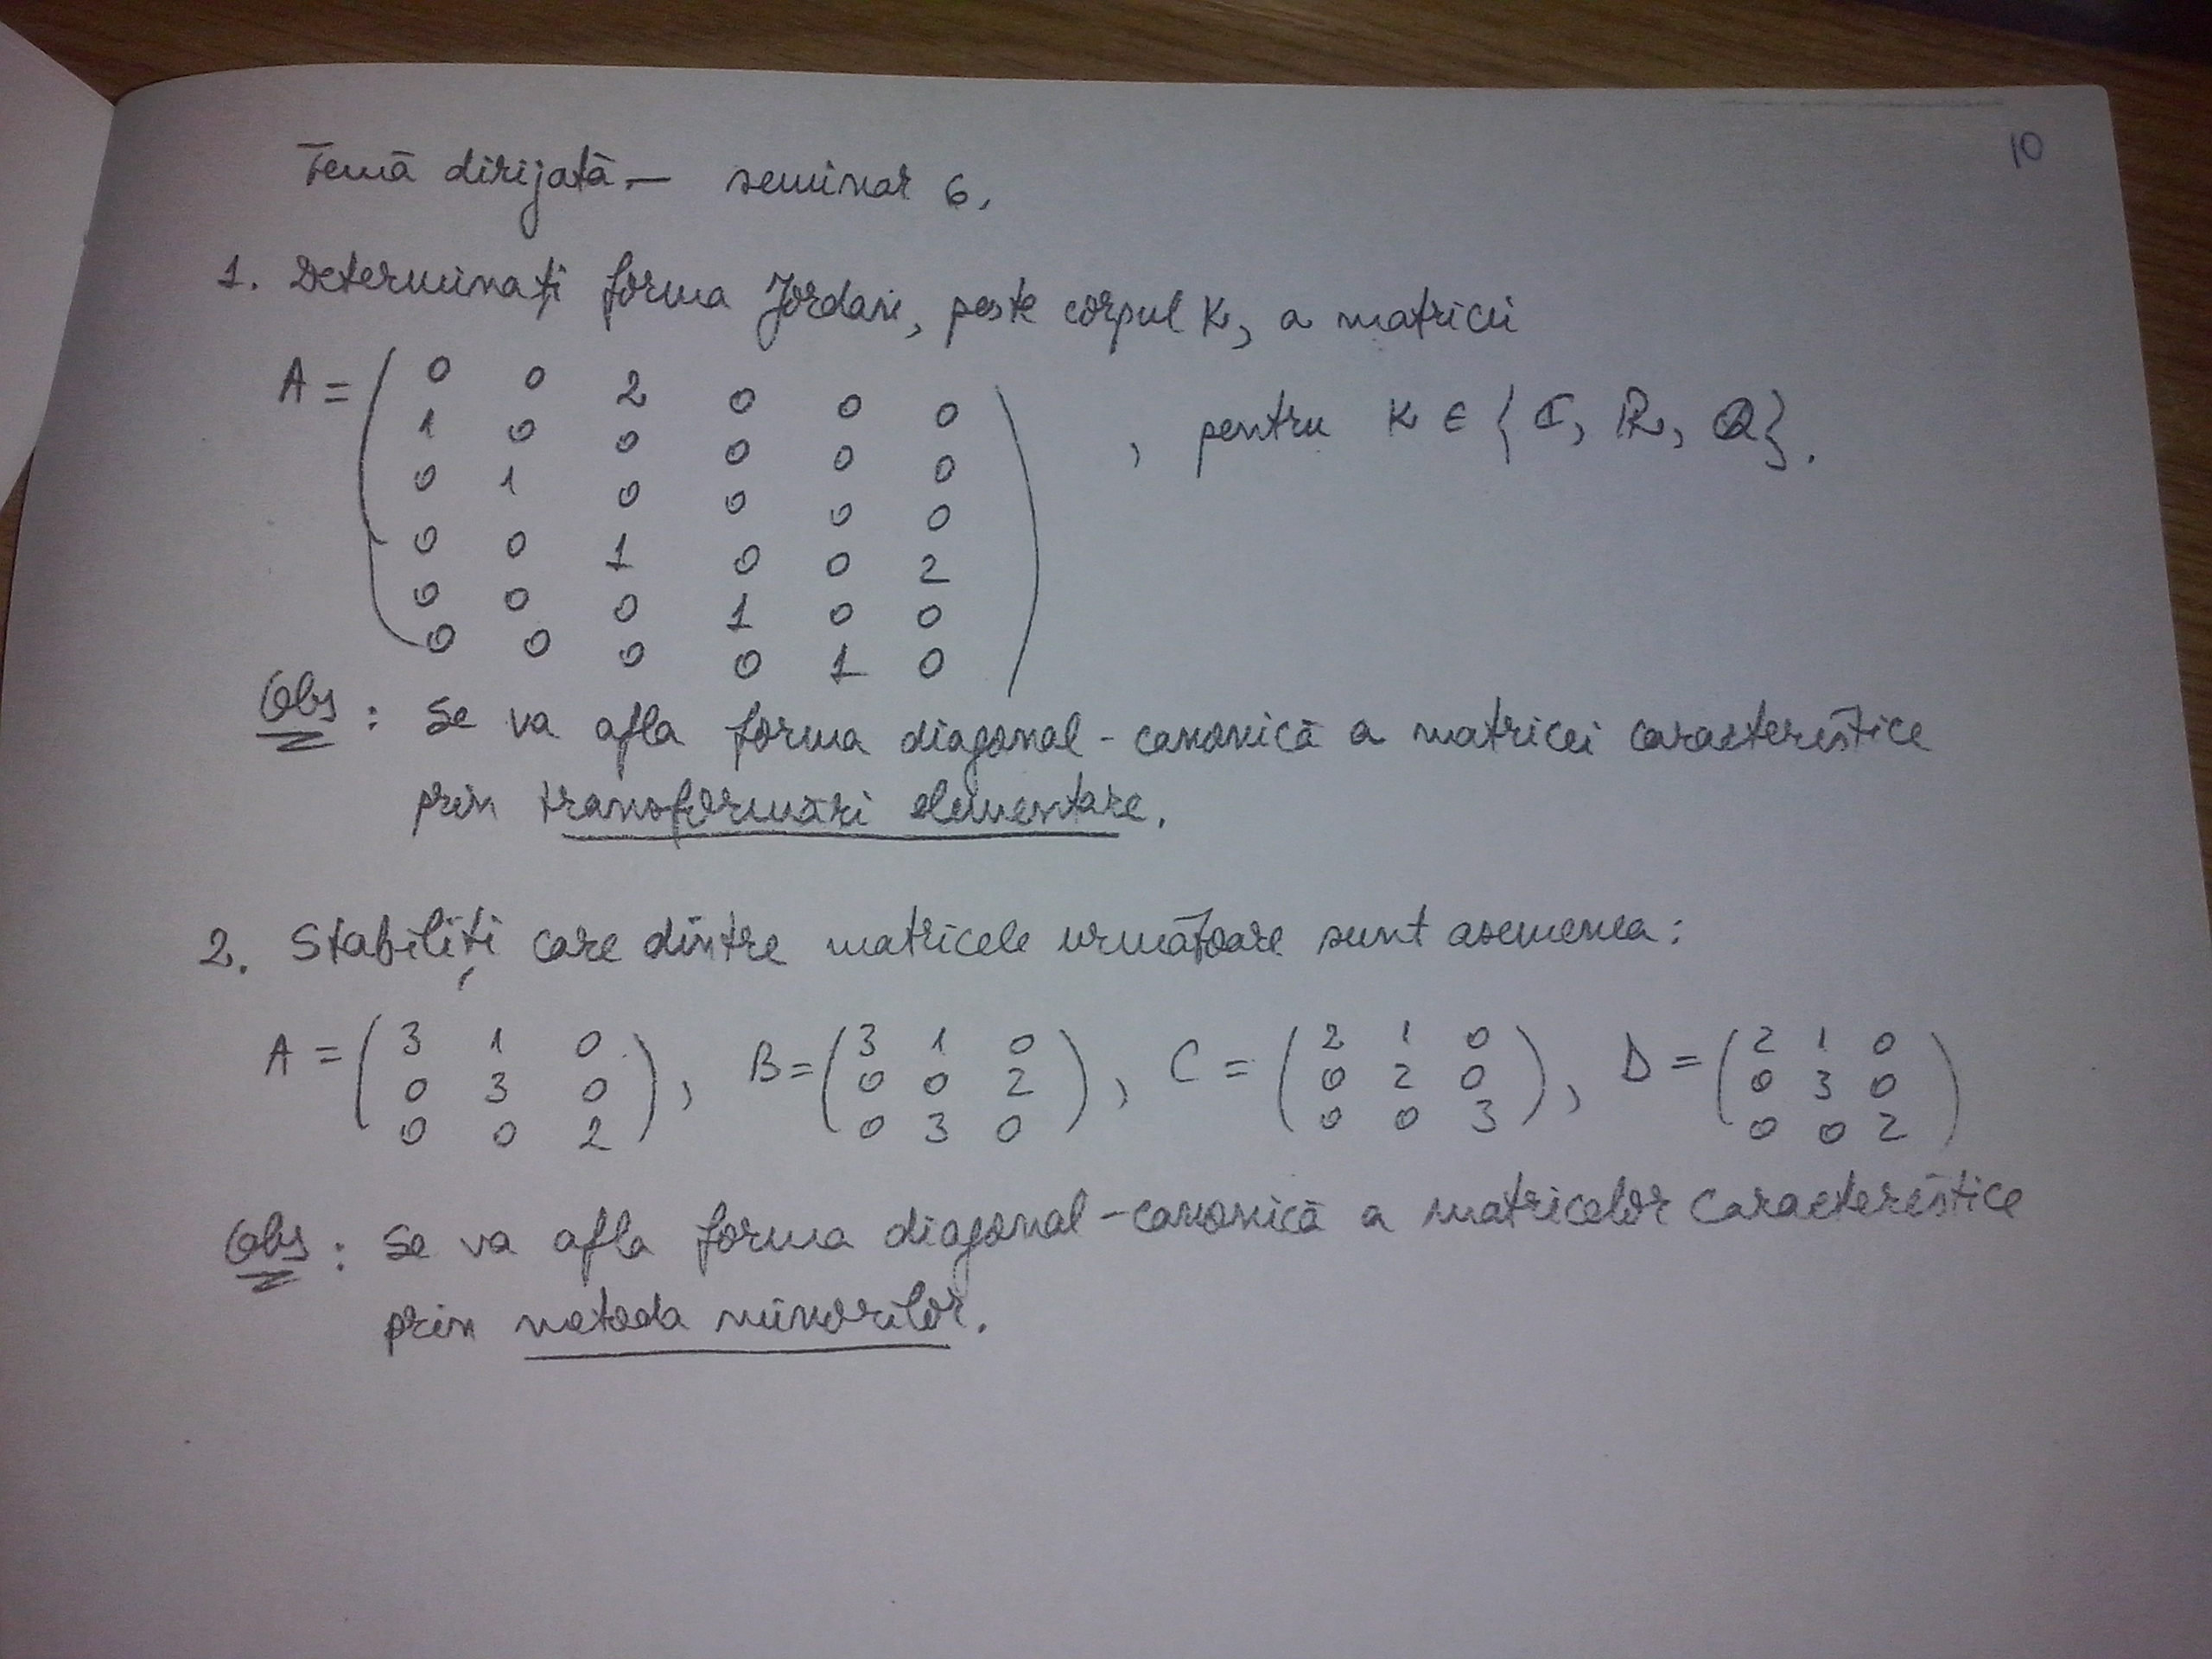 10
Temă dirijată — seminar 6.
1. Determinați forma Jordan, peste corpul K, a matricii
A = ( 0 0 2 0 0 0
1 0 0 0 0 0
0 1 0 0 0 0
0 0 1 0 0 2
0 0 0 1 0 0
0 0 0 0 1 0 ) , pentru K ∈ {ℂ, ℝ, ℚ}.
Obs : Se va afla forma diagonal-canonică a matricei caracteristice
prin transformări elementare.
2. Stabiliți care dintre matricele următoare sunt asemenea:
A = ( 3 1 0 ; 0 3 0 ; 0 0 2 ), B = ( 3 1 0 ; 0 0 2 ; 0 3 0 ), C = ( 2 1 0 ; 0 2 0 ; 0 0 3 ), D = ( 2 1 0 ; 0 3 0 ; 0 0 2 )
Obs : Se va afla forma diagonal-canonică a matricelor caracteristice
prin metoda minorilor.